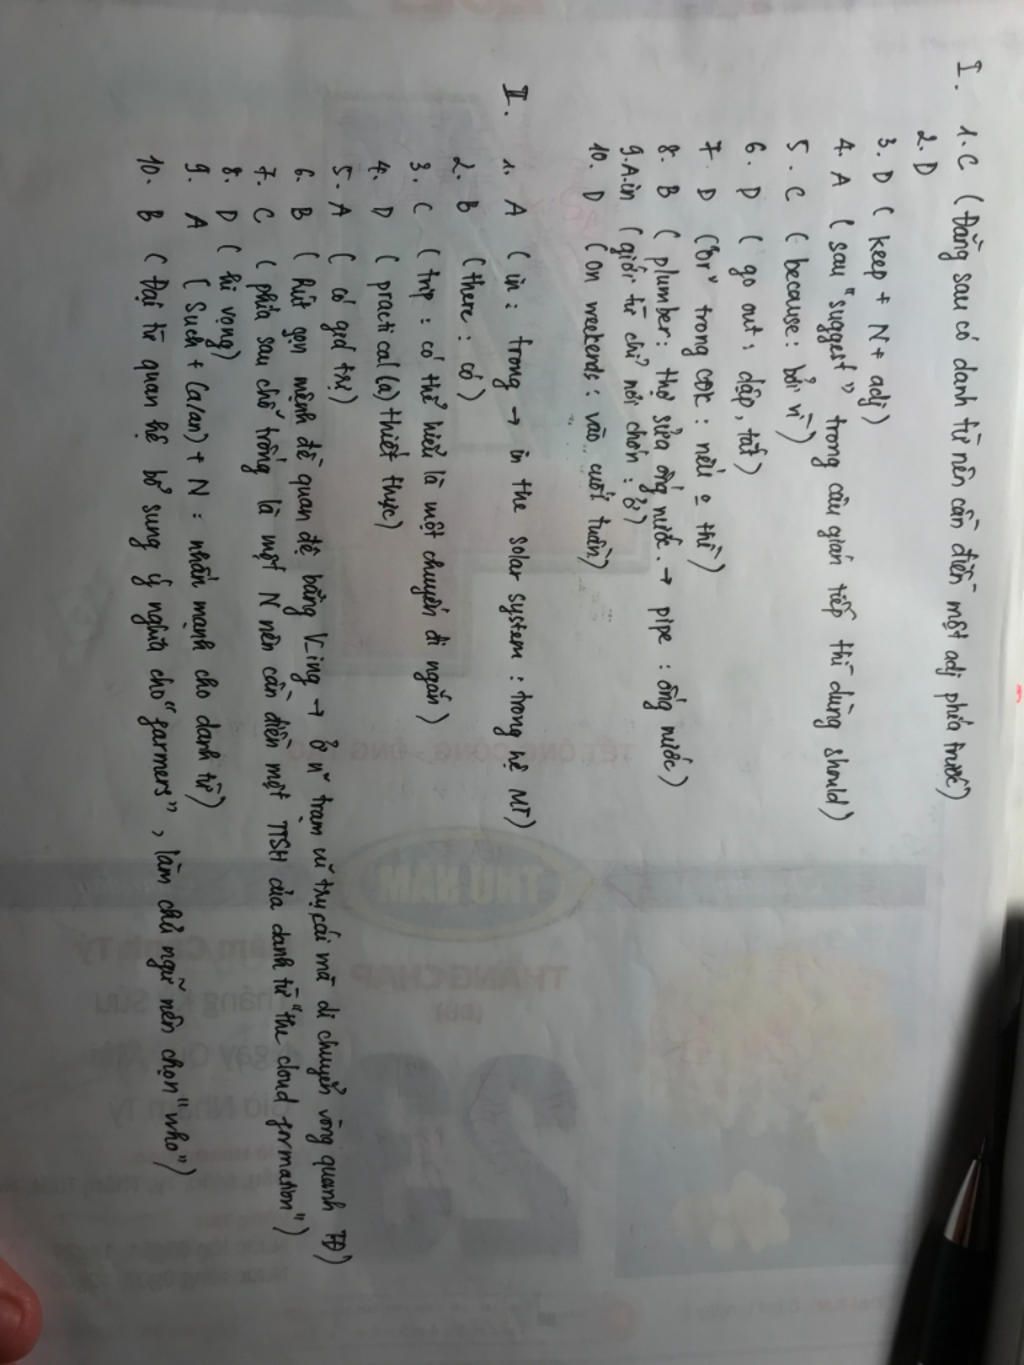 I. 1. C (Đằng sau có danh từ nên cần điền một adj phía trước)
2. D
3. D ( keep + N + adj)
4. A ( sau "suggest" trong câu gián tiếp thì dùng should)
5. C ( because : bởi vì)
6. D ( go out : dập, tắt)
7. D ("or" trong CĐK : nếu o thì)
8. B ( plumber : thợ sửa ống nước. → pipe : ống nước)
9. A. in (giới từ chỉ nơi chốn : ở)
10. D ( on weekends : vào cuối tuần)
II. 1. A ( in : trong → in the solar system : trong hệ MT)
2. B (there : có)
3. C ( trip : có thể hiểu là một chuyến đi ngắn)
4. D ( practical (a) thiết thực)
5. A ( có giá trị)
6. B ( Rút gọn mệnh đề quan đệ bằng V_ing → ở trạm vũ trụ cái mà di chuyển vòng quanh TĐ)
7. C ( phía sau chỗ trống là một N nên cần điền một TTSH của danh từ "the cloud formation")
8. D ( hi vọng)
9. A ( Such + (a/an) + N : nhấn mạnh cho danh từ)
10. B ( Đại từ quan hệ bổ sung ý nghĩa cho "farmers", làm chủ ngữ nên chọn "who")
THỨ NĂM
THÁNG CHẠP